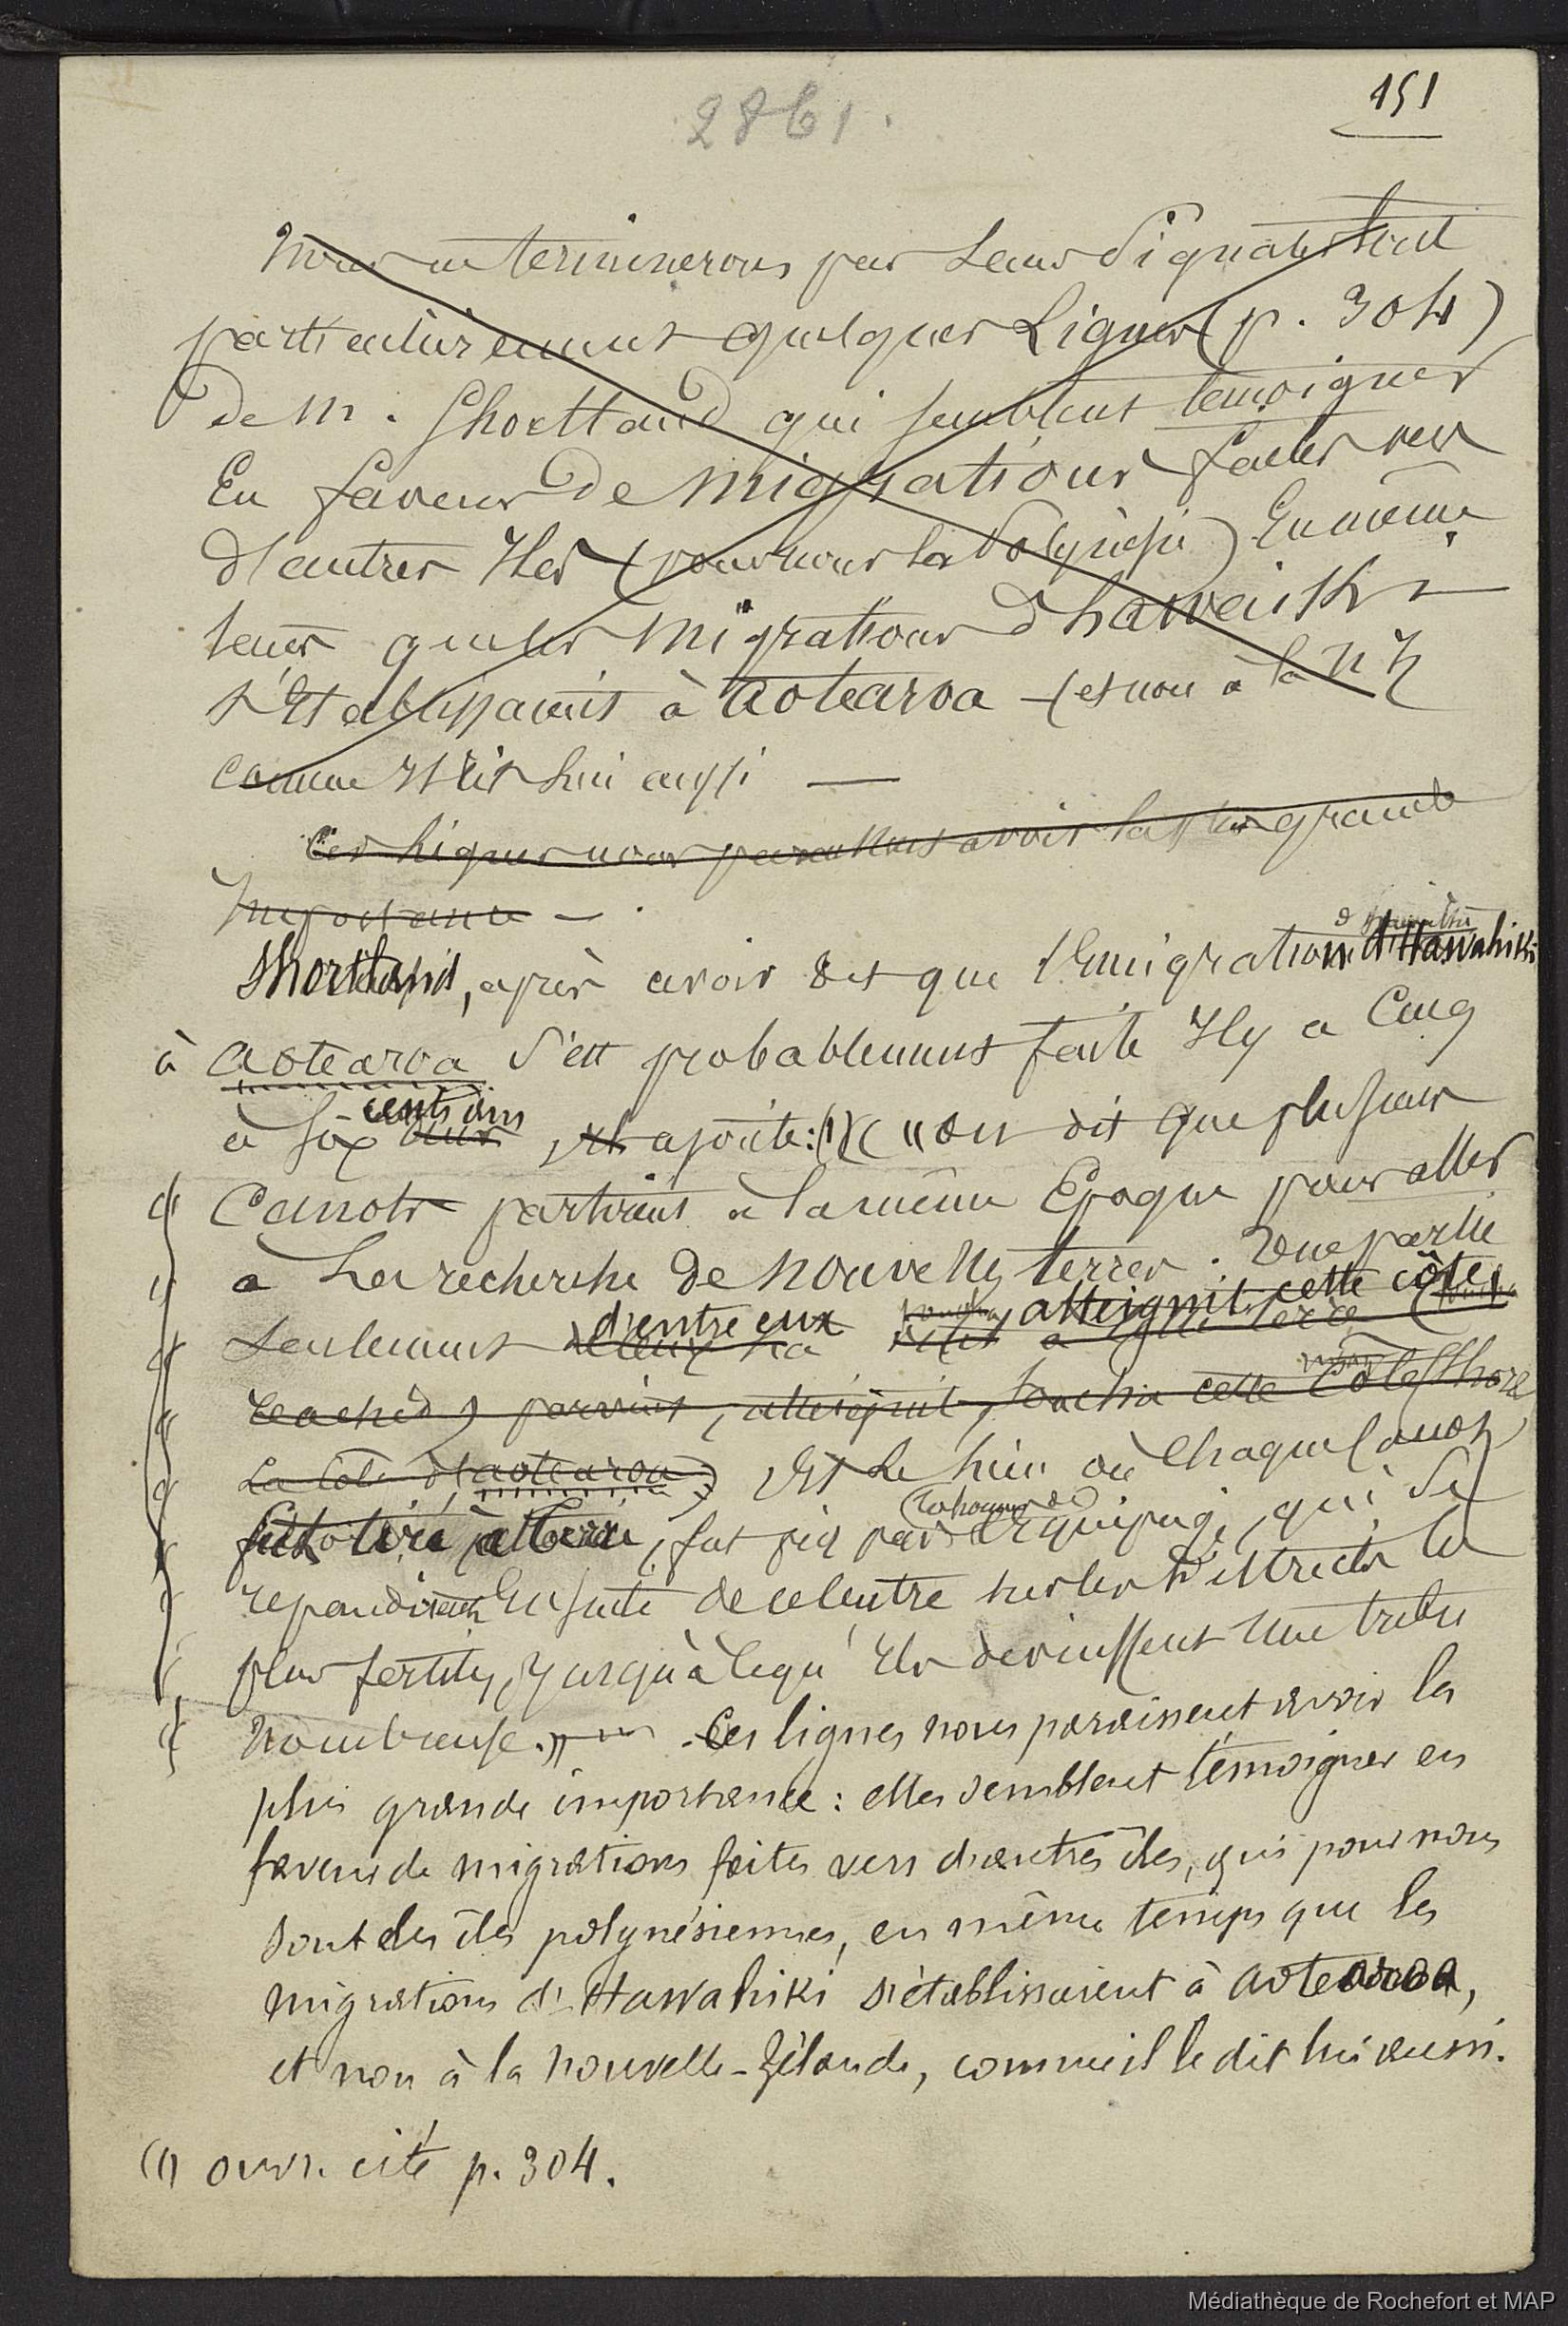 151
2861.
Nous terminerons par Leur Signaler tout
particulièrement quelques Lignes (p. 304)
De M. Shortland qui semblent temoigner
En faveur De Migrations faites vers
D'autres Iles (pour nous la Polynésie) En même
temps que les Migrations D'hawaiki
s'Etablissaient à Aotearoa - (et non à la N Z
comme Il dit lui aussi —
Ces lignes nous paraissent avoir la plus grande
Importance - .
Shortland, après avoir dit que l'Emigration d'Hawahiki
à Aotearoa s'est probablement faite Il y a Cinq
à Six cents ans, Il ajoute: (1) (« "on dit que plusieurs
Canots partirent à la même Epoque pour aller
à La recherche De Nouvelles terres. Une partie
Seulement d'entre eux atteignit cette côte,
reached, parvint, atteignit, toucha cette Côte (Shore
La Côte d'aotearoa) Et Le lieu où Chaque Canot
fut tiré à terre, fut pris par L'Equipage, qui se
repandirent Ensuite de ce Centre sur les Districts les
plus fertiles, Jusqu'à ce qu'Ils devinssent Une tribu
Nombreuse. » — Ces lignes nous paraissent avoir la
plus grande importance : elles semblent témoigner en
faveur de migrations faites vers d'autres îles, qui pour nous
sont des îles polynésiennes, en même temps que les
migrations d'Hawahiki s'établissaient à Aotearoa,
et non à la Nouvelle-Zélande, comme il le dit lui aussi.
(1) ouvr. cité p. 304.
Médiathèque de Rochefort et MAP